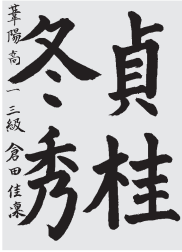 貞桂
冬秀
葦陽高一 三級 倉田佳凛